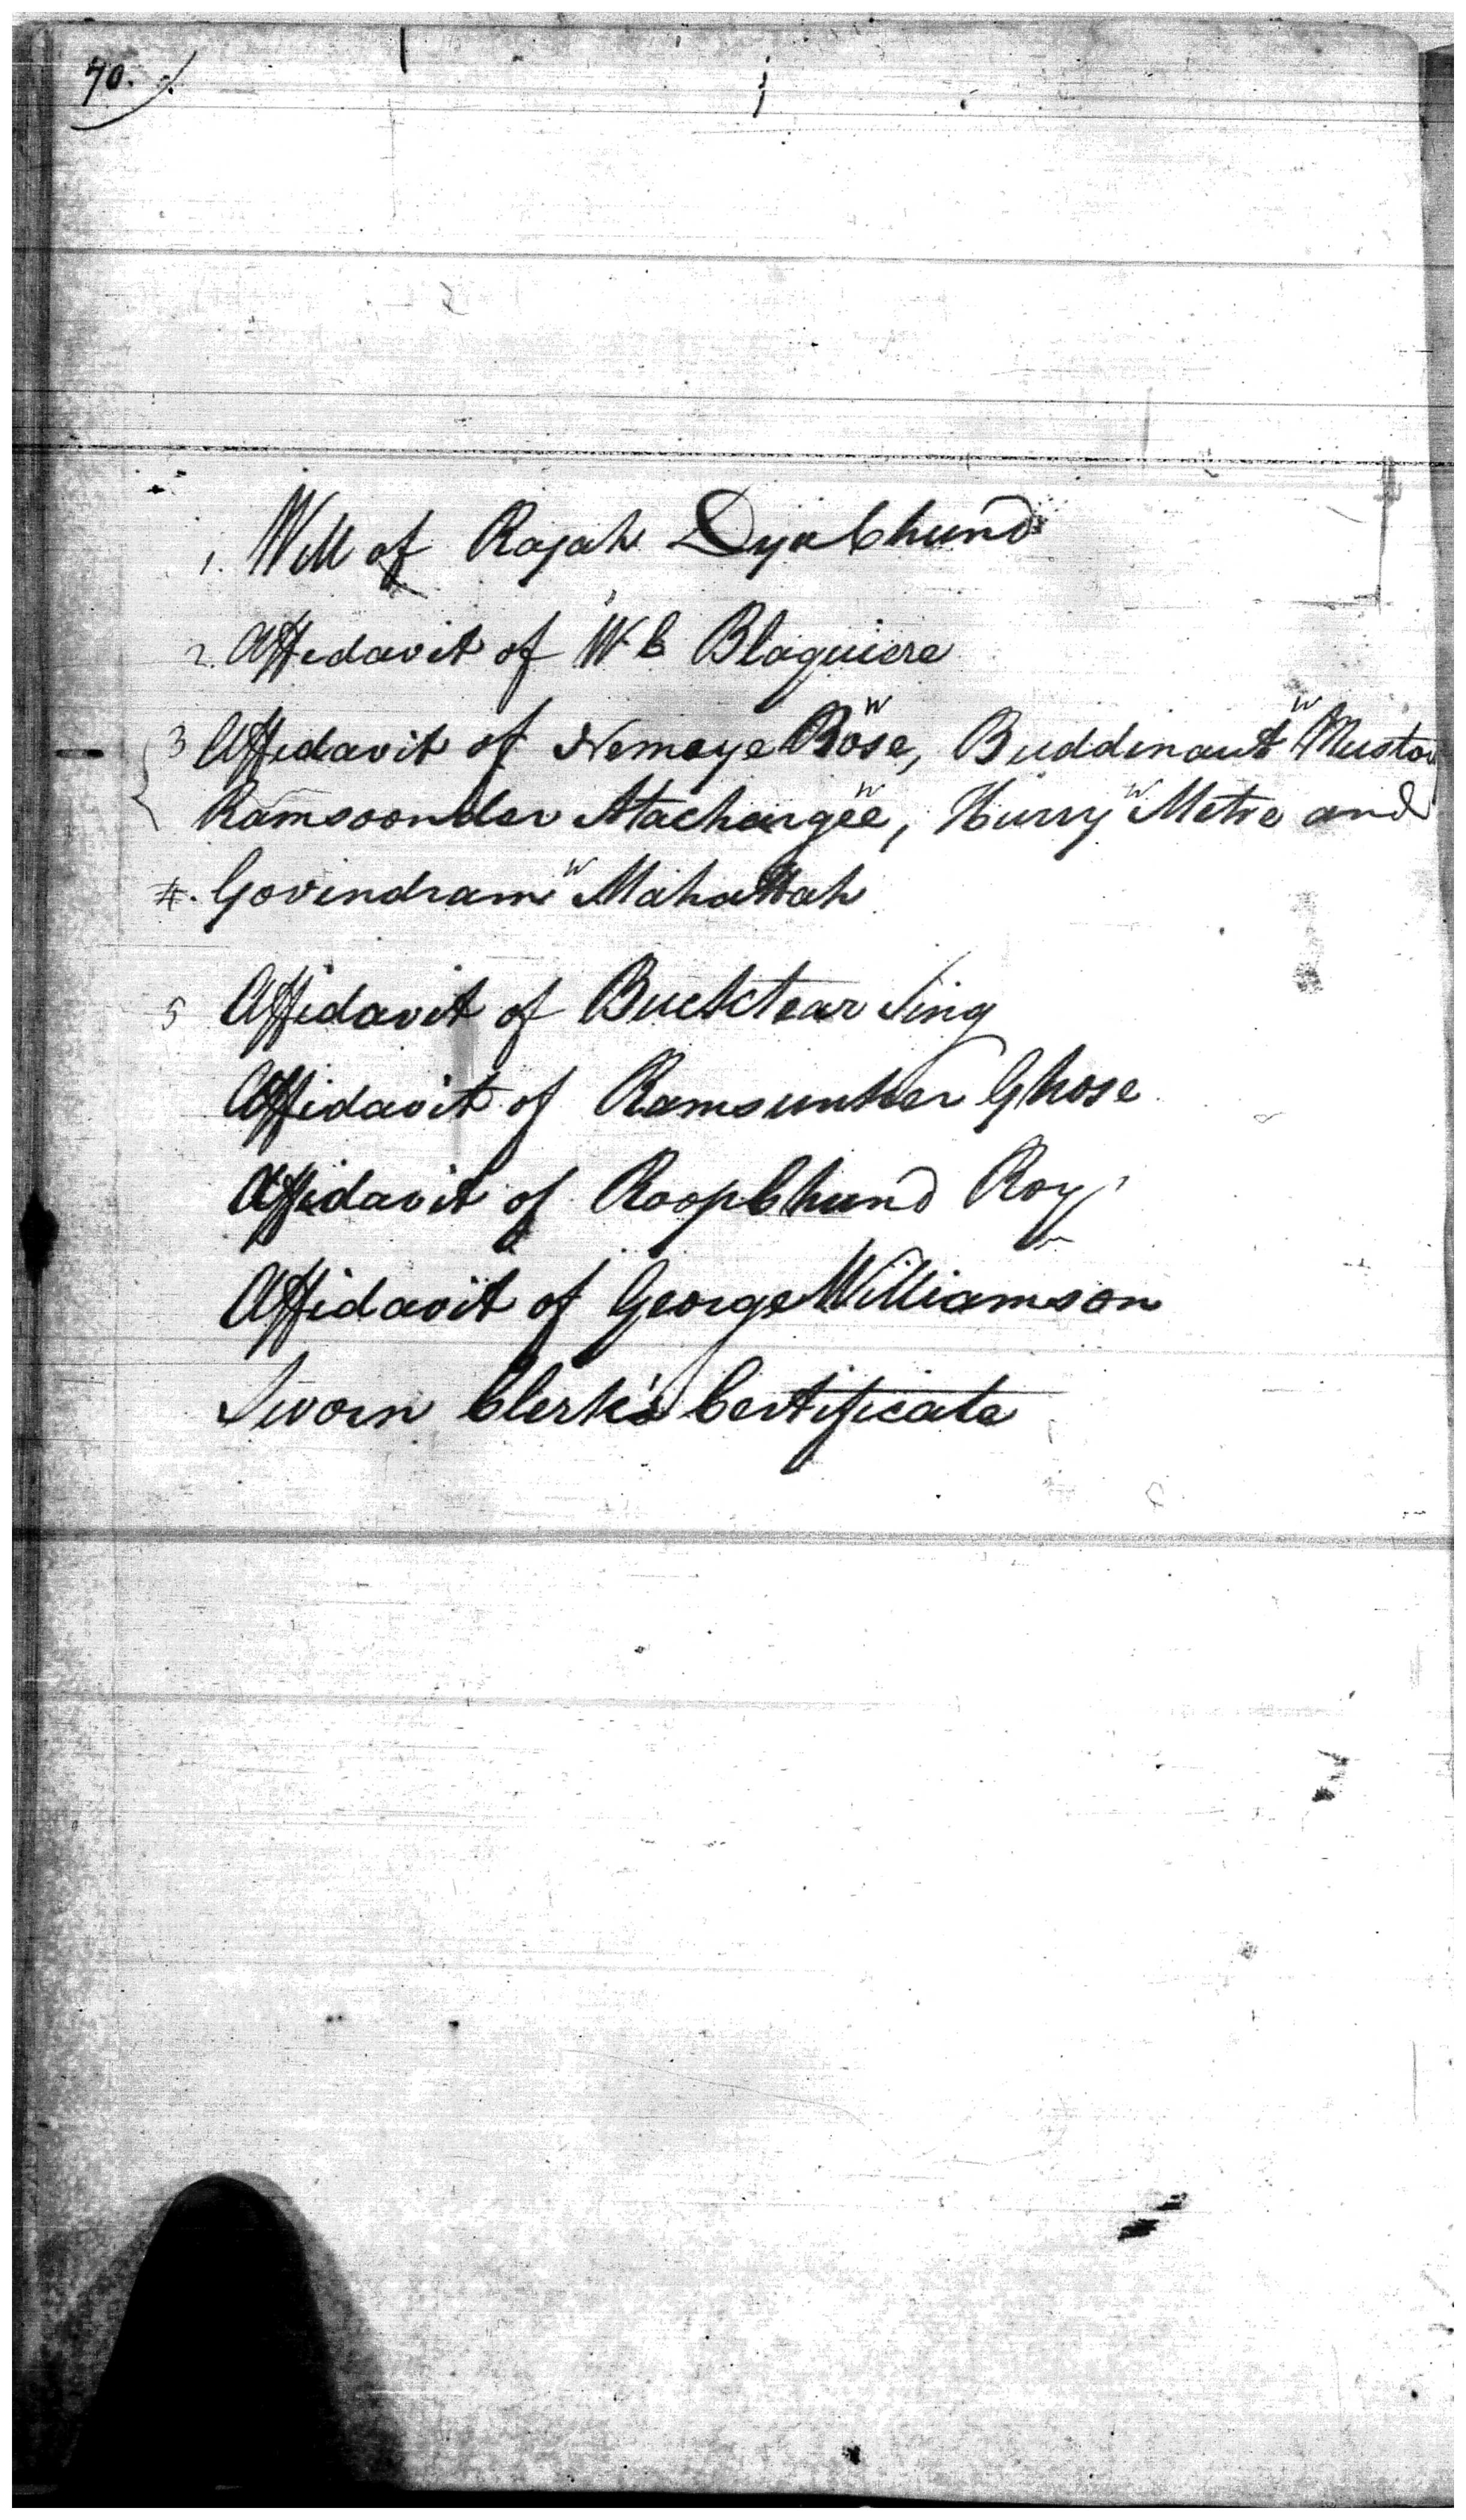 70.
1. Will of Rajah DyaChund
2. Affidavit of W C Blaquiere
3 Affidavit of Nemaye Bose, Buddinaut
Ramsoonder Atachargee, Hurry Metre and
4. Govindram Mahattah
5 Affidavit of Bucktear Sing
Affidavit of Ramsunker Ghose
Affidavit of RoopChund Roy
Affidavit of George Williamson
Sworn Clerk's Certificate